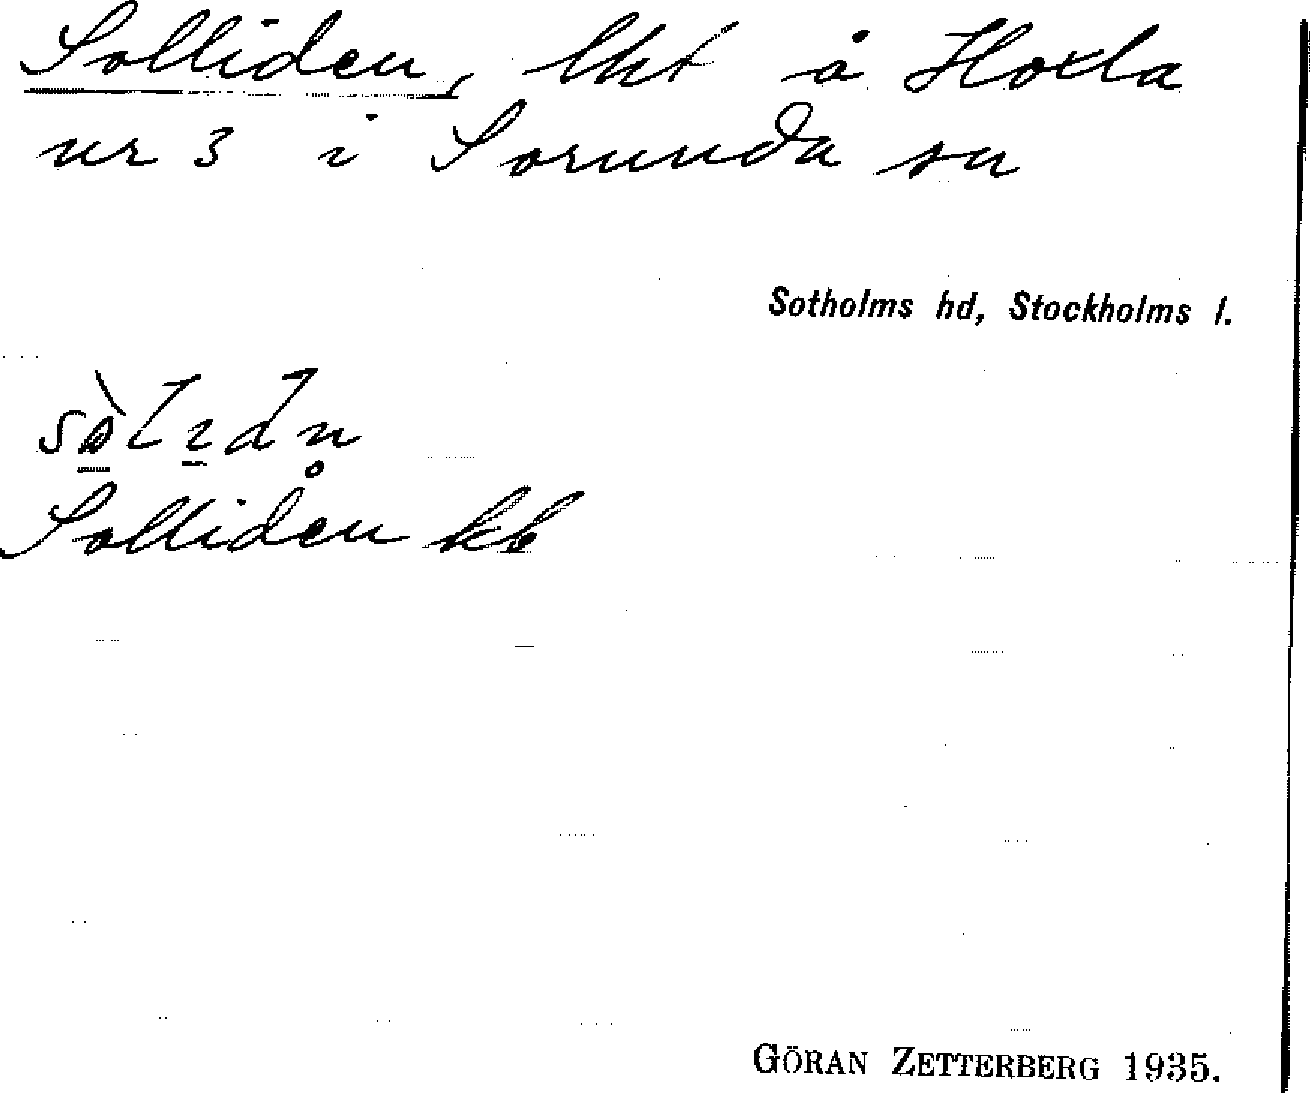 Solliden, lht å Hoxla
nr 3 i Sorunda sn
Sotholms hd, Stockholms l.
Solliden kb
GÖRAN ZETTERBERG 1935.